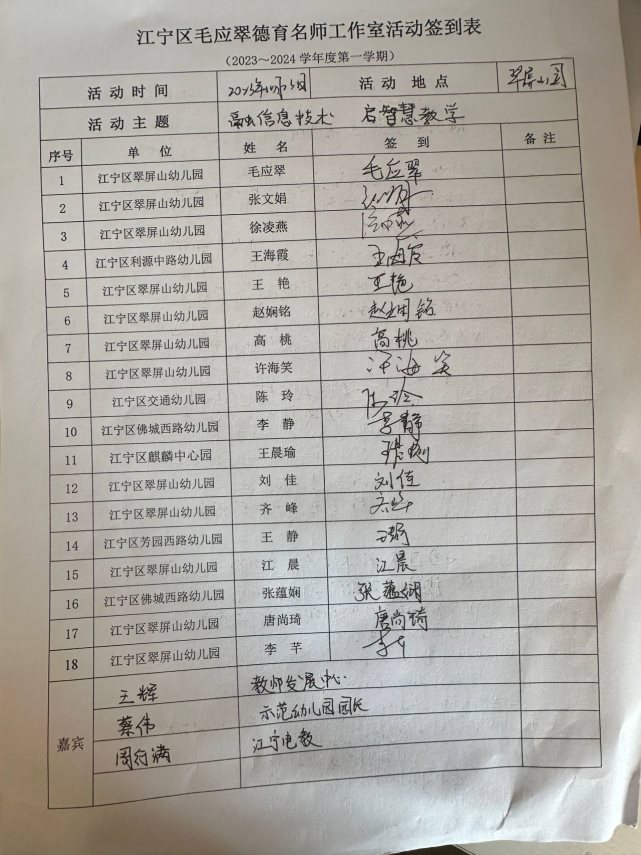 江宁区毛应翠德育名师工作室活动签到表
（2023～2024学年度第一学期）
活动时间 活动地点 翠屏山园
活动主题 融信息技术 启智慧教学
序号 单位 姓名 签到 备注
1 江宁区翠屏山幼儿园 毛应翠 毛应翠
2 江宁区翠屏山幼儿园 张文娟 张文娟
3 江宁区翠屏山幼儿园 徐凌燕
4 江宁区利源中路幼儿园 王海霞 王海霞
5 江宁区翠屏山幼儿园 王艳 王艳
6 江宁区翠屏山幼儿园 赵娴铭 赵娴铭
7 江宁区翠屏山幼儿园 高桃 高桃
8 江宁区翠屏山幼儿园 许海笑 许海笑
9 江宁区交通幼儿园 陈玲 陈玲
10 江宁区佛城西路幼儿园 李静 李静
11 江宁区麒麟中心园 王晨瑜
12 江宁区翠屏山幼儿园 刘佳 刘佳
13 江宁区翠屏山幼儿园 齐峰 齐峰
14 江宁区芳园西路幼儿园 王静 王静
15 江宁区翠屏山幼儿园 江晨 江晨
16 江宁区佛城西路幼儿园 张蕴娴 张蕴娴
17 江宁区翠屏山幼儿园 唐尚琦 唐尚琦
18 江宁区翠屏山幼儿园 李芊 李芊
嘉宾
王辉 教师发展中心
蔡伟 示范幼儿园园长
江宁电教